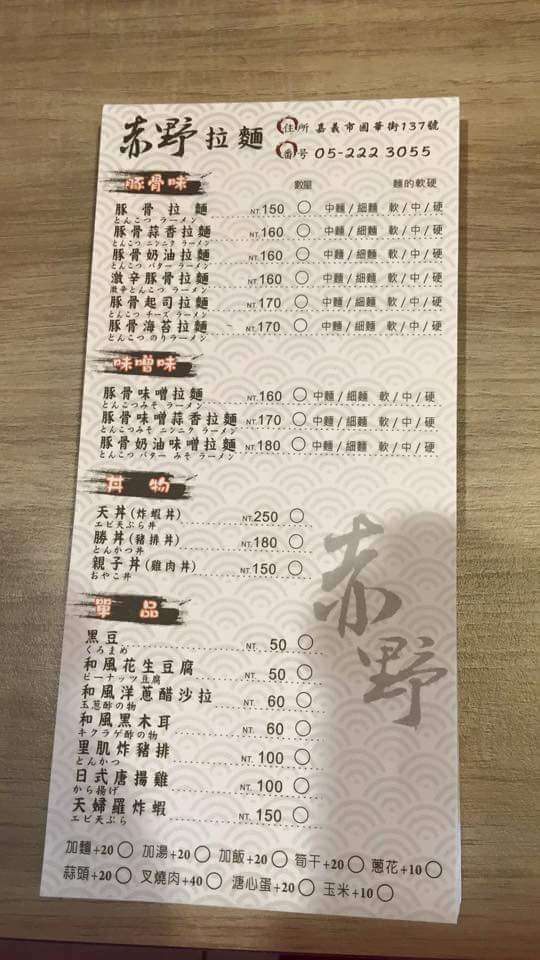 赤野拉麵 住所 嘉義市國華街137號
番号 05-222 3055
豚骨味 數量 麵的軟硬
豚骨拉麵 NT.150 ○ 中麵/細麵 軟/中/硬
とんこつ ラーメン
豚骨蒜香拉麵 NT.160 ○ 中麵/細麵 軟/中/硬
とんこつ ニンニク ラーメン
豚骨奶油拉麵 NT.160 ○ 中麵/細麵 軟/中/硬
とんこつ バター ラーメン
激辛豚骨拉麵 NT.160 ○ 中麵/細麵 軟/中/硬
激辛とんこつ ラーメン
豚骨起司拉麵 NT.170 ○ 中麵/細麵 軟/中/硬
とんこつ チーズ ラーメン
豚骨海苔拉麵 NT.170 ○ 中麵/細麵 軟/中/硬
とんこつ のり ラーメン
味噌味
豚骨味噌拉麵 NT.160 ○ 中麵/細麵 軟/中/硬
とんこつみそ ラーメン
豚骨味噌蒜香拉麵 NT.170 ○ 中麵/細麵 軟/中/硬
とんこつみそ ニンニク ラーメン
豚骨奶油味噌拉麵 NT.180 ○ 中麵/細麵 軟/中/硬
とんこつ バター みそ ラーメン
丼物
天丼(炸蝦丼) NT.250 ○
エビ天ぷら丼
勝丼(豬排丼) NT.180 ○
とんかつ丼
親子丼(雞肉丼) NT.150 ○
おやこ丼
赤野
單品
黑豆 NT. 50 ○
くろまめ
和風花生豆腐 NT. 50 ○
ピーナッツ豆腐
和風洋蔥醋沙拉 NT. 60 ○
玉葱酢の物
和風黑木耳 NT. 60 ○
キクラゲ酢の物
里肌炸豬排 NT. 100 ○
とんかつ
日式唐揚雞 NT. 100 ○
から揚げ
天婦羅炸蝦 NT. 150 ○
エビ天ぷら
加麵+20○ 加湯+20○ 加飯+20○ 筍干+20○ 蔥花+10○
蒜頭+20○ 叉燒肉+40○ 溏心蛋+20○ 玉米+10○